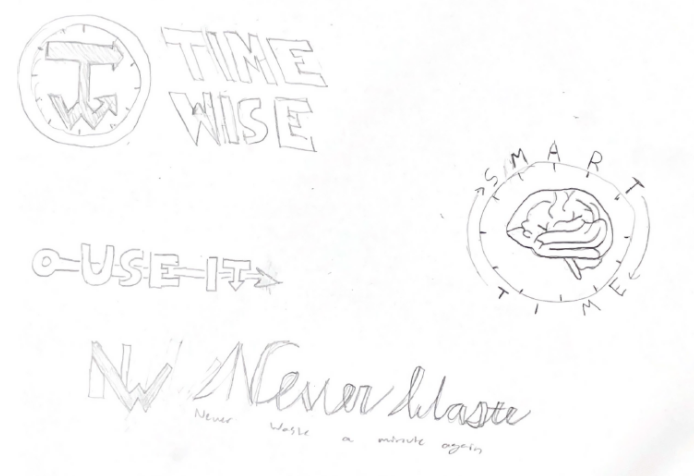 TW
TIME
WISE
SMART
TIME
USE IT
NW
Never Waste
Never Waste a minute again